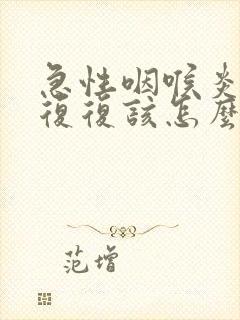 急性咽喉炎
復復該怎麼
范增